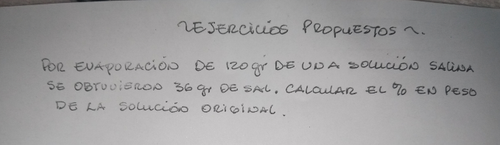 ~EJERCICIOS PROPUESTOS~.
POR EVAPORACIÓN DE 120gr DE UNA SOLUCIÓN SALINA
SE OBTUVIERON 36gr DE SAL. CALCULAR EL % EN PESO
DE LA SOLUCIÓN ORIGINAL.